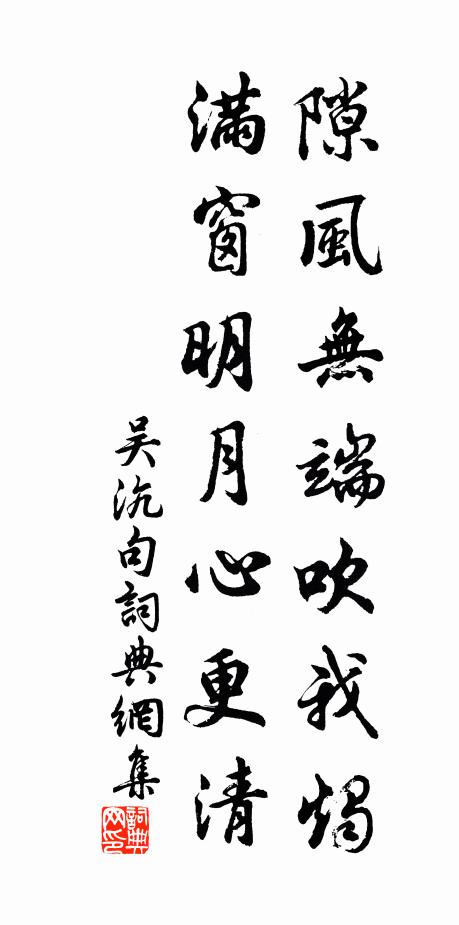 隙風無端吹我燭
滿窗明月心更清
吴沆句詞典網集
詞典网印